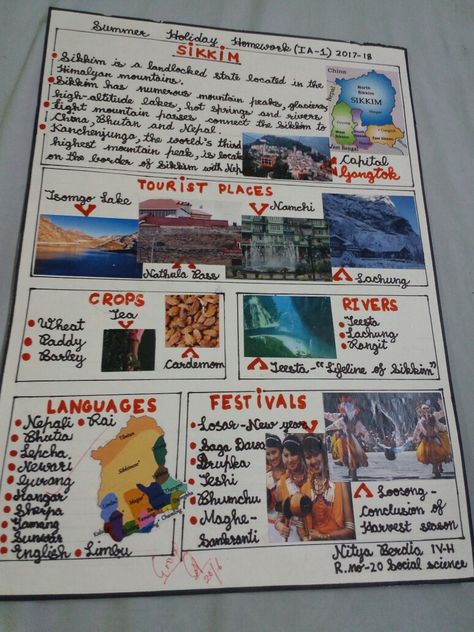 Summer Holiday Homework (IA-1) 2017-18
SIKKIM
Sikkim is a landlocked state located in the
Himalyan mountains.
Sikkim has numerous mountain peaks, glaciers
high-altitude lakes, hot springs and rivers
Eight mountain passes connect the Sikkim to
China, Bhutan and Nepal.
Kanchenjunga, the world's third
highest mountain peak, is locate
on the border of Sikkim with Nep
China
Nepal
North
Sikkim
SIKKIM
West Bengal
Capital
Gangtok
TOURIST PLACES
Tsomgo Lake
Namchi
Nathula Pass
Lachung
CROPS
Tea
Wheat
Paddy
Barley
Cardemom
RIVERS
Teesta
Lachung
Rangit
Teesta-"Lifeline of Sikkim"
LANGUAGES
Nepali
Rai
Bhutia
Lepcha
Newari
Gurang
Mangar
Sherpa
Tamang
Sunwar
English
Limbu
FESTIVALS
Losar-New year
Saga Dawa
Drupka
Teshi
Bhumchu
Maghe-
Sankranti
Loosong-
Conclusion of
Harvest season
Nitya Berdia IV-H
R.no-20 Social science